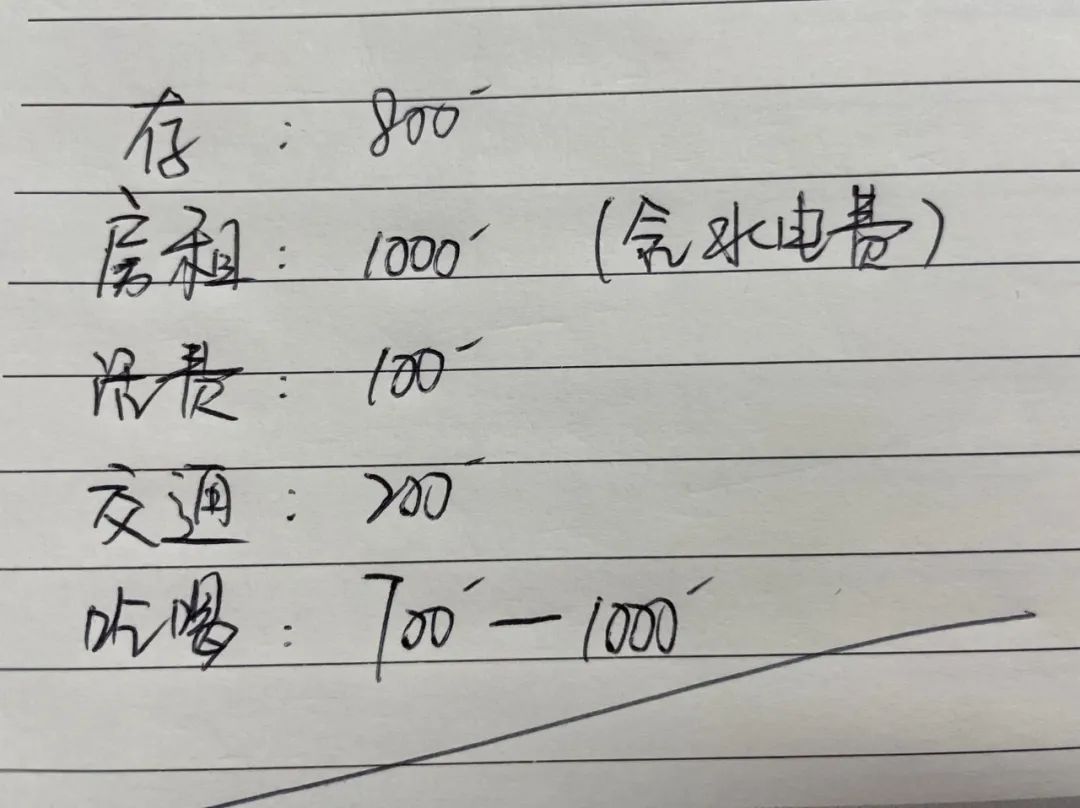 存：800
房租：1000（含水电费）
话费：100
交通：200
吃喝：700—1000